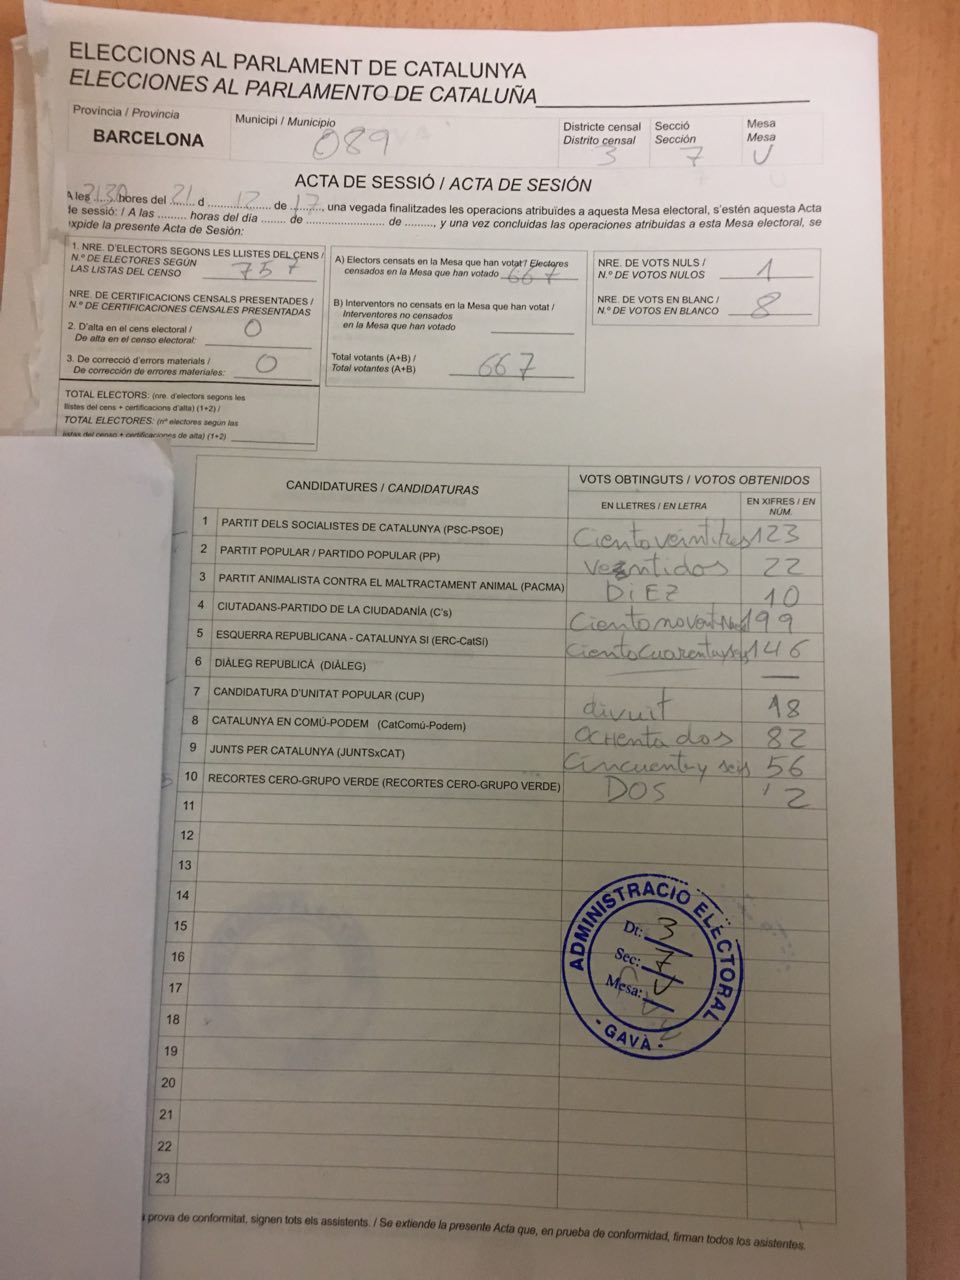 ELECCIONS AL PARLAMENT DE CATALUNYA
ELECCIONES AL PARLAMENTO DE CATALUÑA
Província / Provincia
BARCELONA
Municipi / Municipio
089
Districte censal
Distrito censal
3
Secció
Sección
7
Mesa
Mesa
U
ACTA DE SESSIÓ / ACTA DE SESIÓN
A les 2130 hores del 21 d 12 de 17, una vegada finalitzades les operacions atribuïdes a aquesta Mesa electoral, s'estén aquesta Acta
de sessió: / A las ......... horas del día ....... de .............................. de ........., y una vez concluidas las operaciones atribuidas a esta Mesa electoral, se
expide la presente Acta de Sesión:
1. NRE. D'ELECTORS SEGONS LES LLISTES DEL CENS /
N.º DE ELECTORES SEGÚN
LAS LISTAS DEL CENSO 757
NRE. DE CERTIFICACIONS CENSALS PRESENTADES /
N.º DE CERTIFICACIONES CENSALES PRESENTADAS
2. D'alta en el cens electoral /
De alta en el censo electoral: 0
3. De correcció d'errors materials /
De corrección de errores materiales: 0
TOTAL ELECTORS: (nre. d'electors segons les
llistes del cens + certificacions d'alta) (1+2) /
TOTAL ELECTORES: (nº electores según las
listas del censo + certificaciones de alta) (1+2)
A) Electors censats en la Mesa que han votat / Electores
censados en la Mesa que han votado 667
B) Interventors no censats en la Mesa que han votat /
Interventores no censados
en la Mesa que han votado
Total votants (A+B) /
Total votantes (A+B) 667
NRE. DE VOTS NULS /
N.º DE VOTOS NULOS 1
NRE. DE VOTS EN BLANC /
N.º DE VOTOS EN BLANCO 8
CANDIDATURES / CANDIDATURAS
VOTS OBTINGUTS / VOTOS OBTENIDOS
EN LLETRES / EN LETRA
EN XIFRES / EN NÚM.
1 PARTIT DELS SOCIALISTES DE CATALUNYA (PSC-PSOE) Ciento veintitres 123
2 PARTIT POPULAR / PARTIDO POPULAR (PP) Veintidos 22
3 PARTIT ANIMALISTA CONTRA EL MALTRACTAMENT ANIMAL (PACMA) DiEZ 10
4 CIUTADANS-PARTIDO DE LA CIUDADANÍA (C's) Ciento 199
5 ESQUERRA REPUBLICANA - CATALUNYA SI (ERC-CatSí) Ciento Cuarenta y seis 146
6 DIÀLEG REPUBLICÀ (DIÀLEG) —
7 CANDIDATURA D'UNITAT POPULAR (CUP) divuit 18
8 CATALUNYA EN COMÚ-PODEM (CatComú-Podem) OCHenta dos 82
9 JUNTS PER CATALUNYA (JUNTSxCAT) Cincuenta y seis 56
10 RECORTES CERO-GRUPO VERDE (RECORTES CERO-GRUPO VERDE) DOS 2
11
12
13
14
15
16
17
18
19
20
21
22
23
ADMINISTRACIÓ ELECTORAL
Dt: 3
Sec: 7
Mesa: U
· GAVÀ ·
a prova de conformitat, signen tots els assistents. / Se extiende la presente Acta que, en prueba de conformidad, firman todos los asistentes.